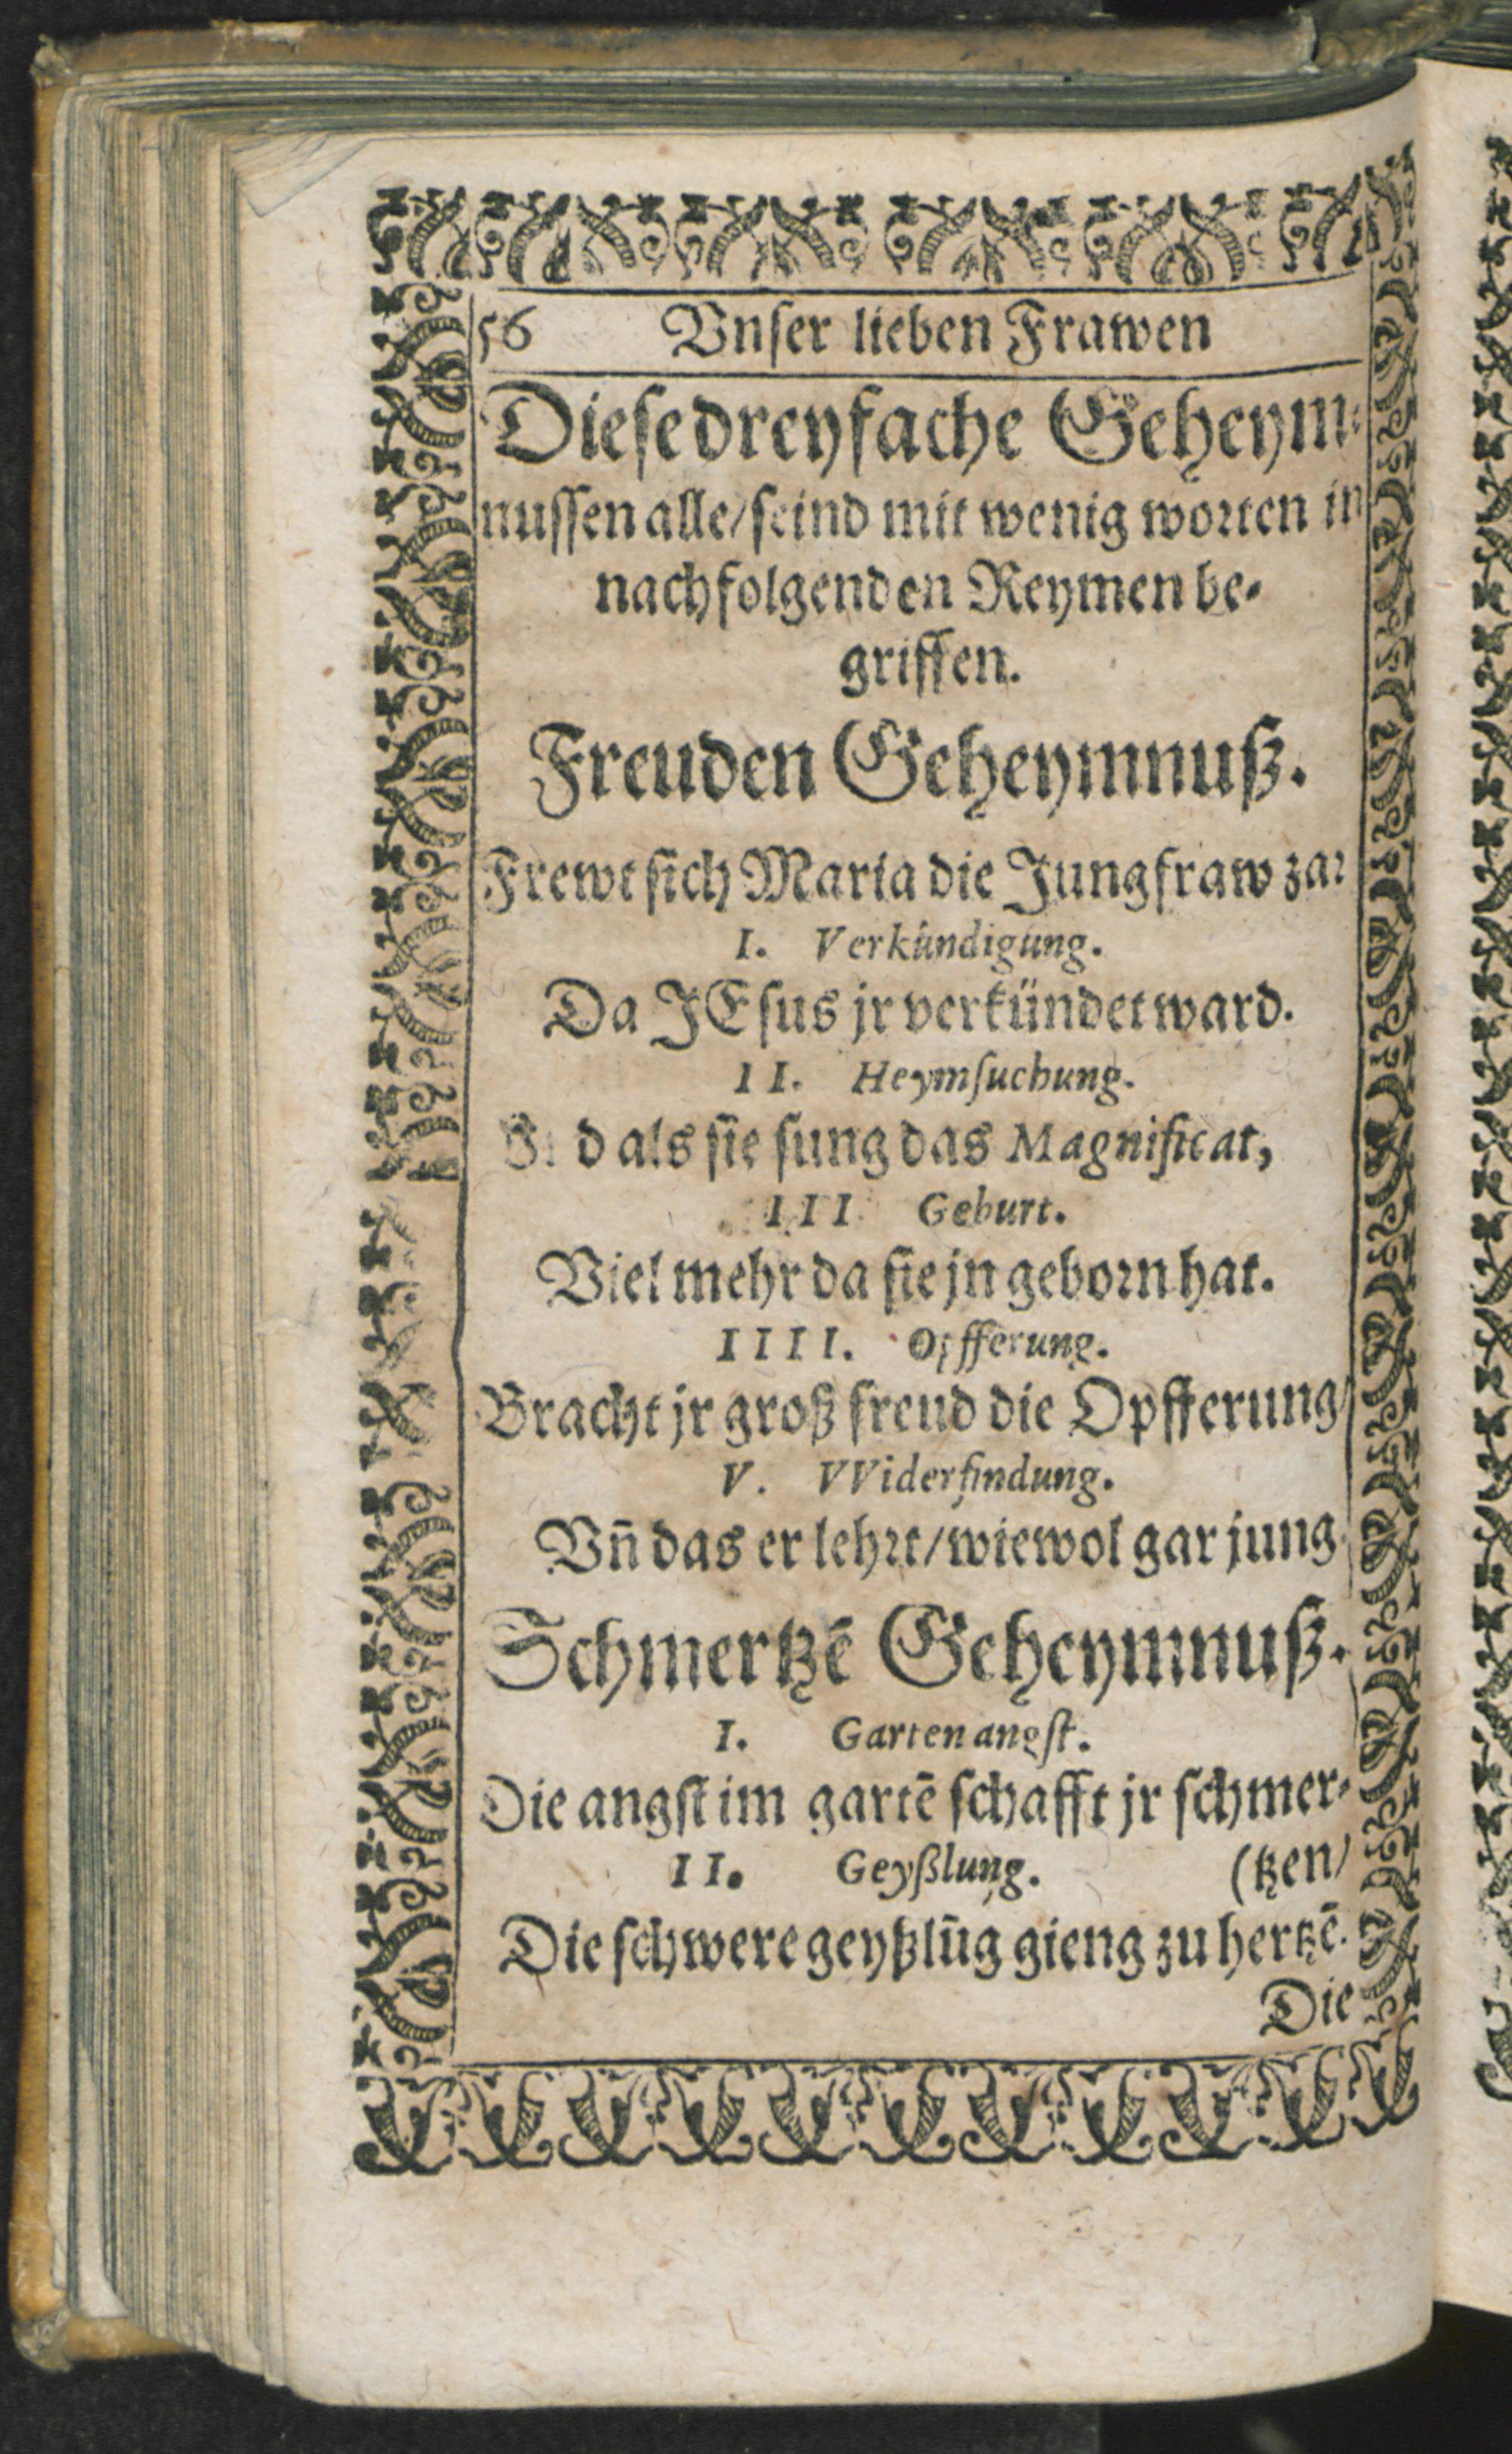 56 Vnser lieben Frawen
Diese dreyfache Geheym-
nussen alle/ seind mit wenig worten in
nachfolgenden Reymen be-
griffen.
Freuden Geheymnuß.
Frewt sich Maria die Jungfraw
I. Verkündigung.
Da JEsus jr verkündet ward.
II. Heymsuchung.
als sie sung das Magnificat,
III Geburt.
Viel mehr da sie jn geborn hat.
IIII. Opfferung.
Bracht jr groß freud die Opfferung/
V. VViderfindung.
Vñ das er lehrt/ wiewol gar jung.
Schmertzē Geheymnuß.
I. Garten angst.
Die angst im gartē schafft jr schmer-
II. Geyßlung. (tzen/
Die schwere geyßlūg gieng zu hertzē.
Die